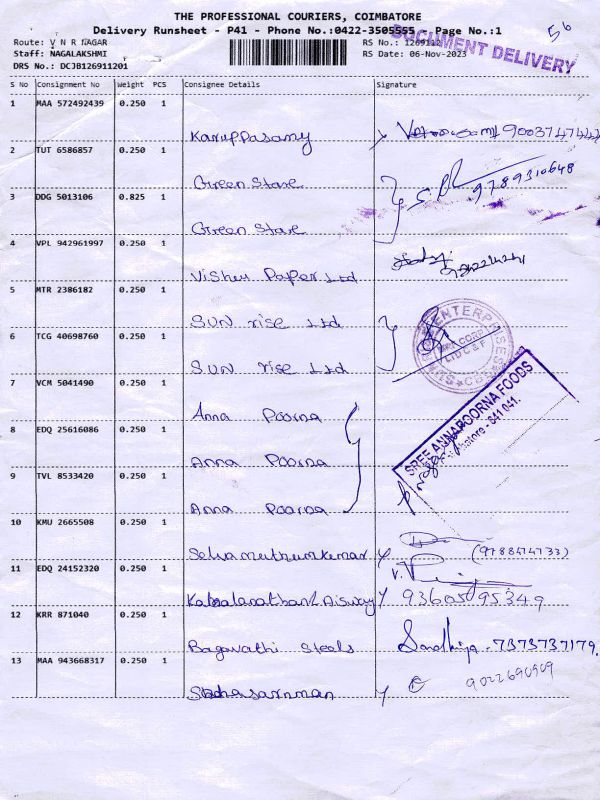 THE PROFESSIONAL COURIERS, COIMBATORE
56
Delivery Runsheet - P41 - Phone No.:0422-3505555 - Page No.:1
DOCUMENT DELIVERY
Route: V N R NAGAR
RS No.: 1269112
Staff: NAGALAKSHMI
RS Date: 06-Nov-2023
DRS No.: DCJB126911201
S No Consignment No Weight PCS Consignee Details Signature
1 MAA 572492439 0.250 1
Karuppasamy
2 TUT 6586857 0.250 1
Green Stare 9789310648
3 DDG 5013106 0.825 1
Green Stare
4 VPL 942961997 0.250 1
Vishu Paper Ltd
5 MTR 2386182 0.250 1
SUN rise Ltd
6 TCG 40698760 0.250 1
SUN rise Ltd
ENTERPRISES
7 VCM 5041490 0.250 1
Anna Poorna
SREE ANNAPOORNA FOODS
8 EDQ 25616086 0.250 1
Anna Poorna
- 641 041.
9 TVL 8533420 0.250 1
Anna Poorna
10 KMU 2665508 0.250 1
Selvamuthumkumar (9788474733)
11 EDQ 24152320 0.250 1
9360595349
12 KRR 871040 0.250 1
Bagavathi Steels Sandhiya - 7373737179.
13 MAA 943668317 0.250 1
9022690909